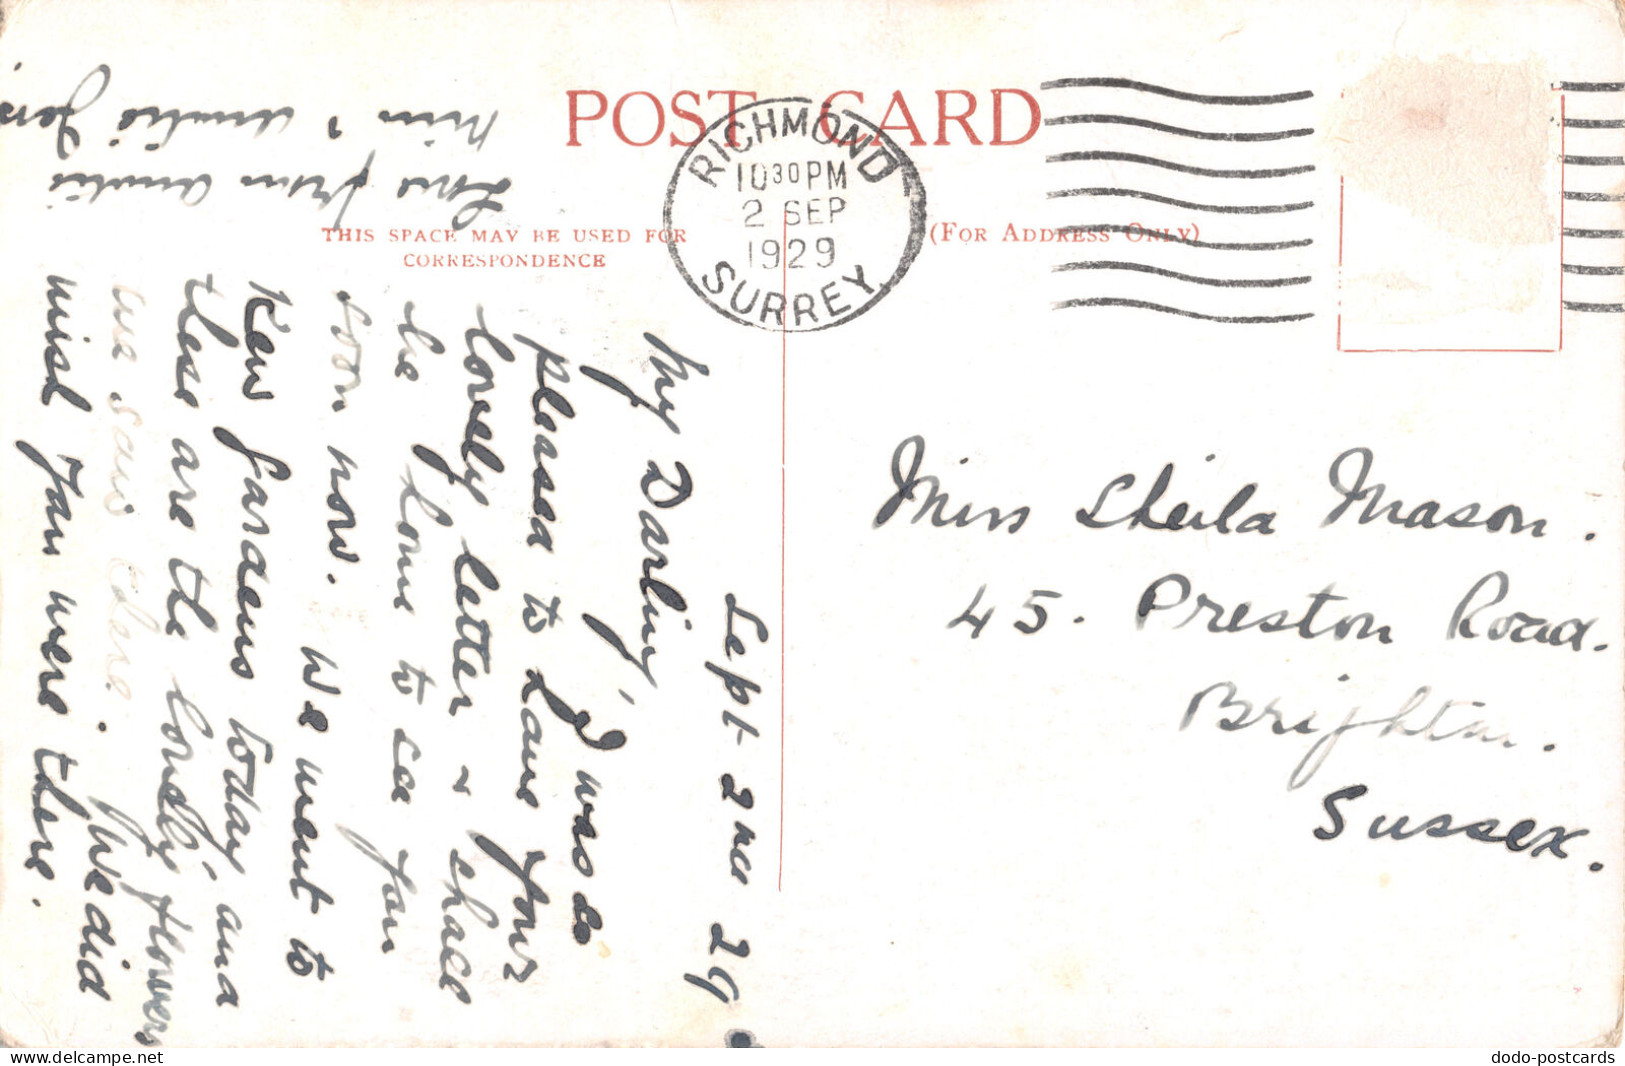 POST CARD
RICHMOND
10 30 PM
2 SEP
1929
SURREY
THIS SPACE MAY BE USED FOR
CORRESPONDENCE
(FOR ADDRESS ONLY)
Sept 2nd 29
My Darling,
I was so
pleased to have your
lovely letter & shall
be home to see you
soon now. We went to
Kew Gardens today and
these are the lovely flowers
we saw there. We did
wish you were there.
Love from Auntie
Win & Auntie
Miss Sheila Mason.
45. Preston Road.
Brighton.
Sussex.
delcampe.net
dodo-postcards